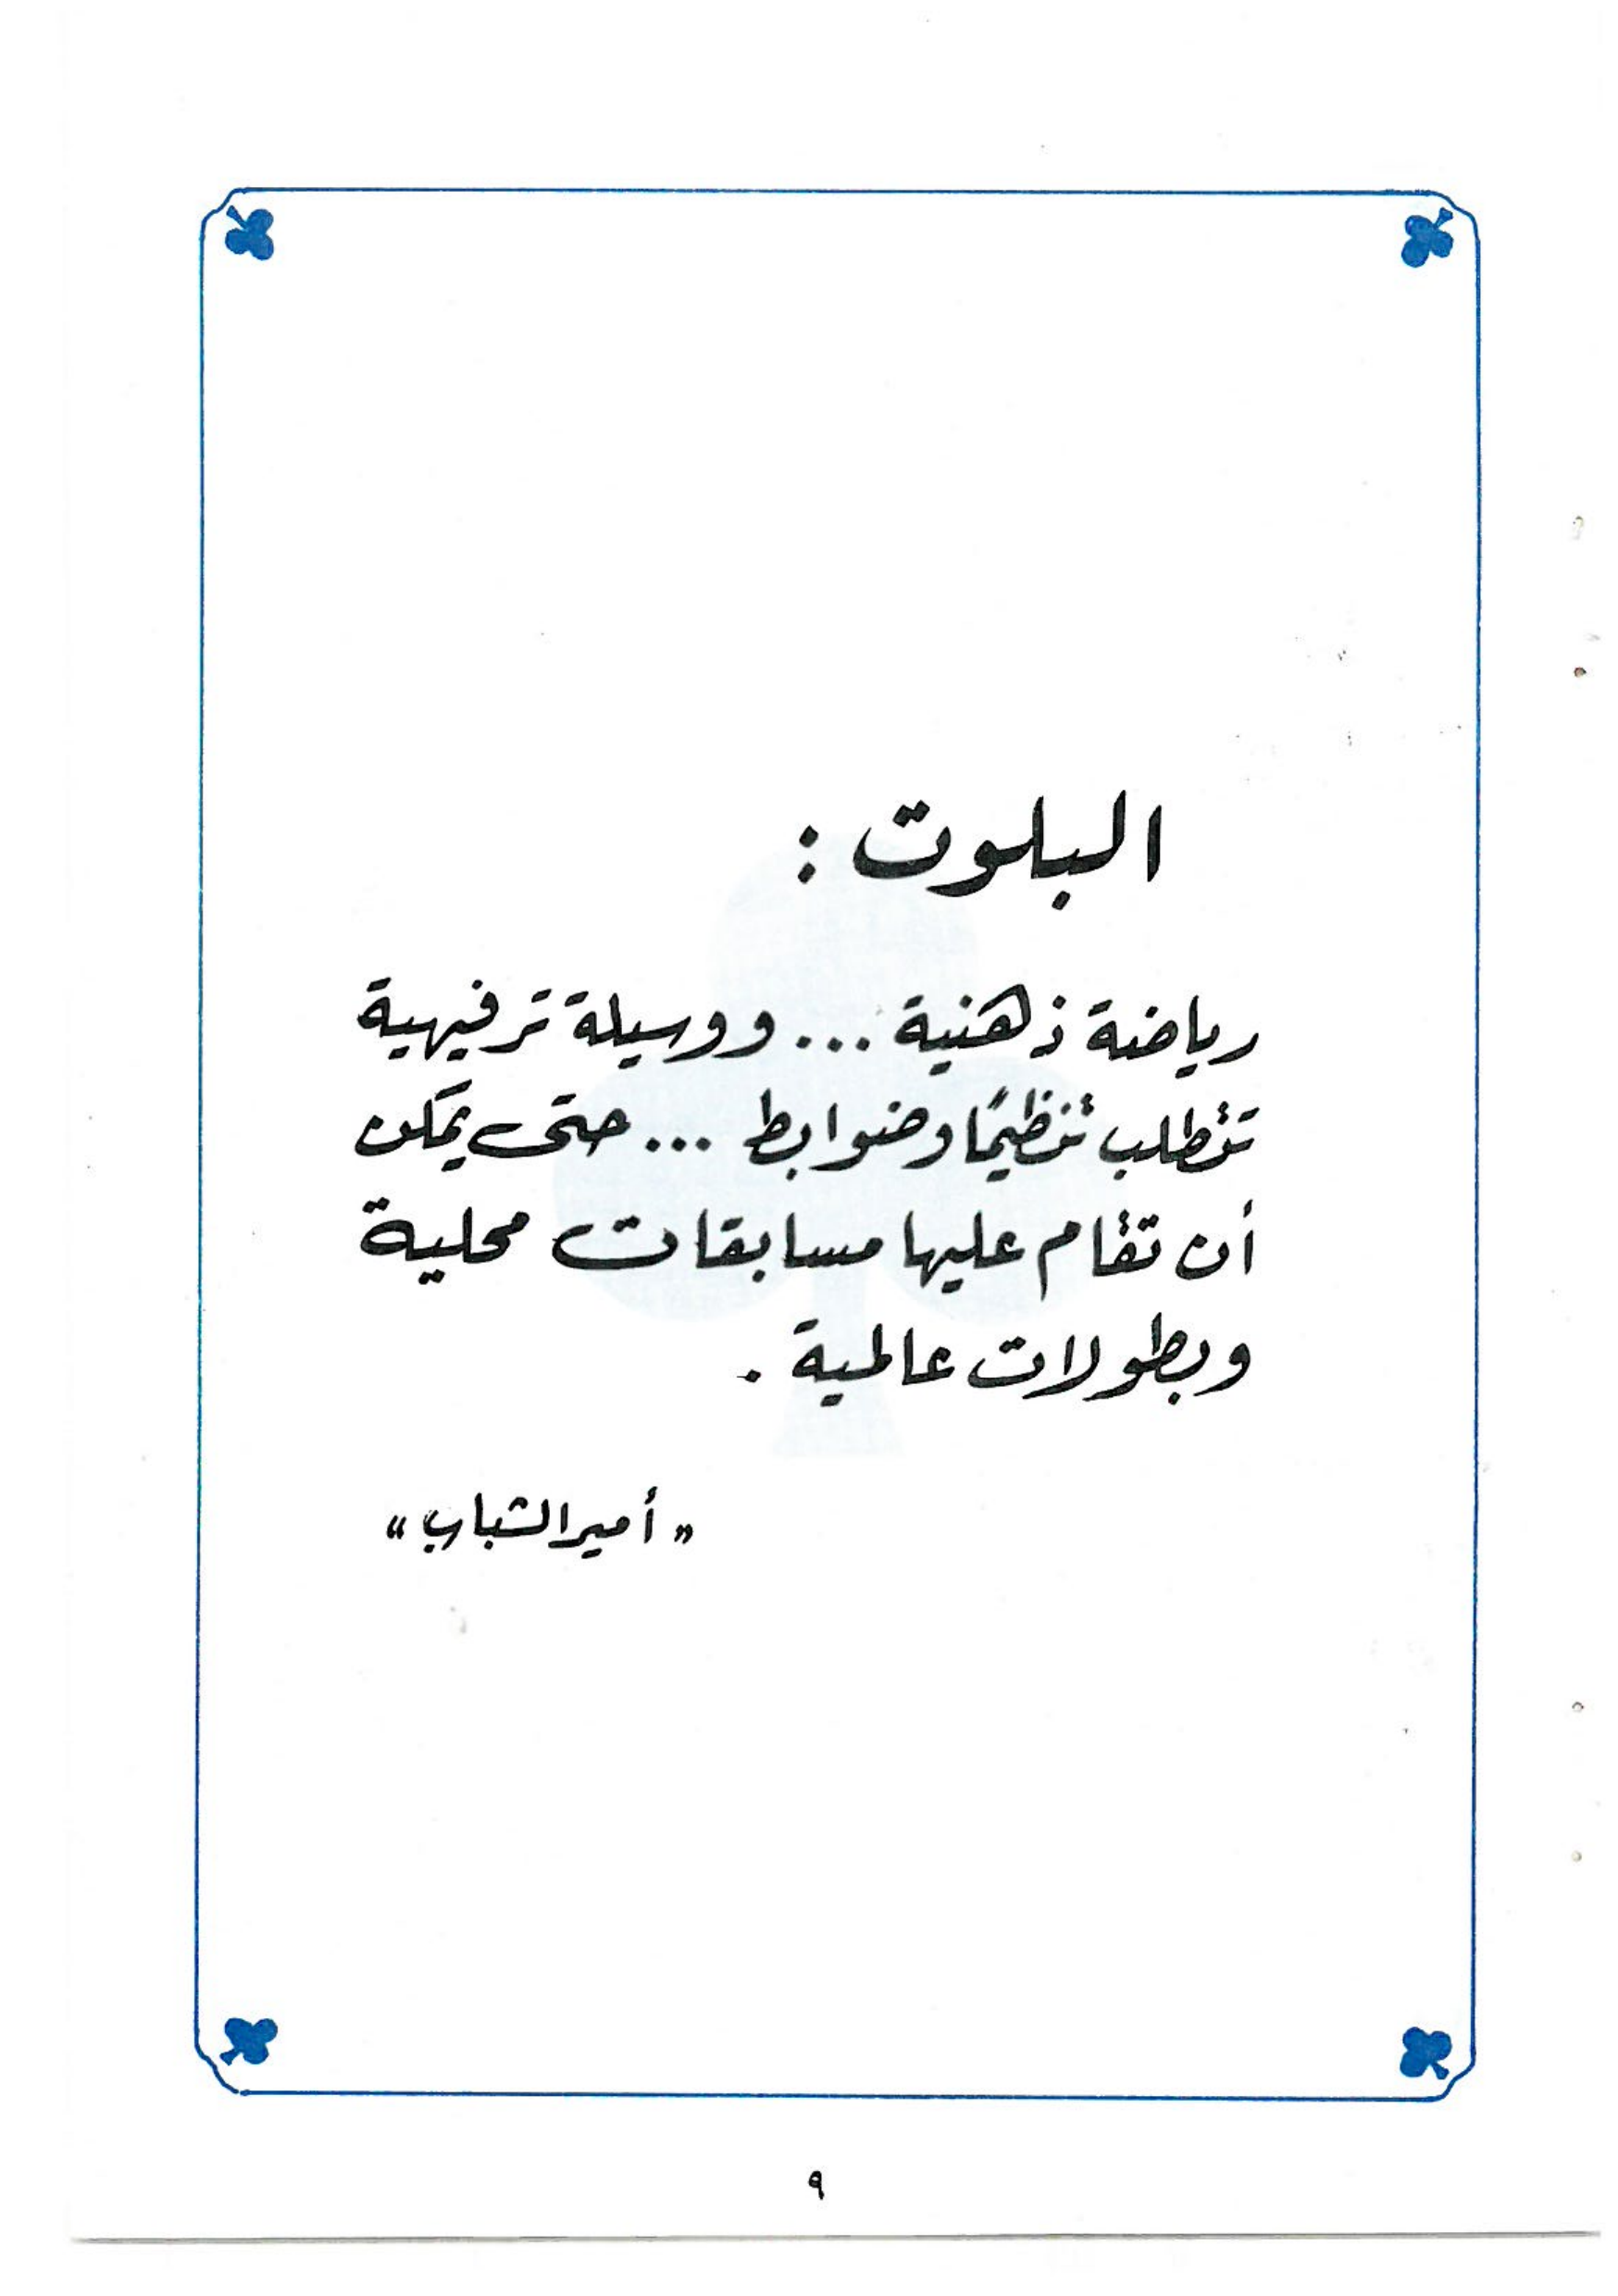 البلوت :
رياضة ذهنية ... ووسيلة ترفيهية
تتطلب تنظيمًا وضوابط ... حتى يمكن
أن تقام عليها مسابقات محلية
وبطولات عالمية .
« أمير الشباب »
٩